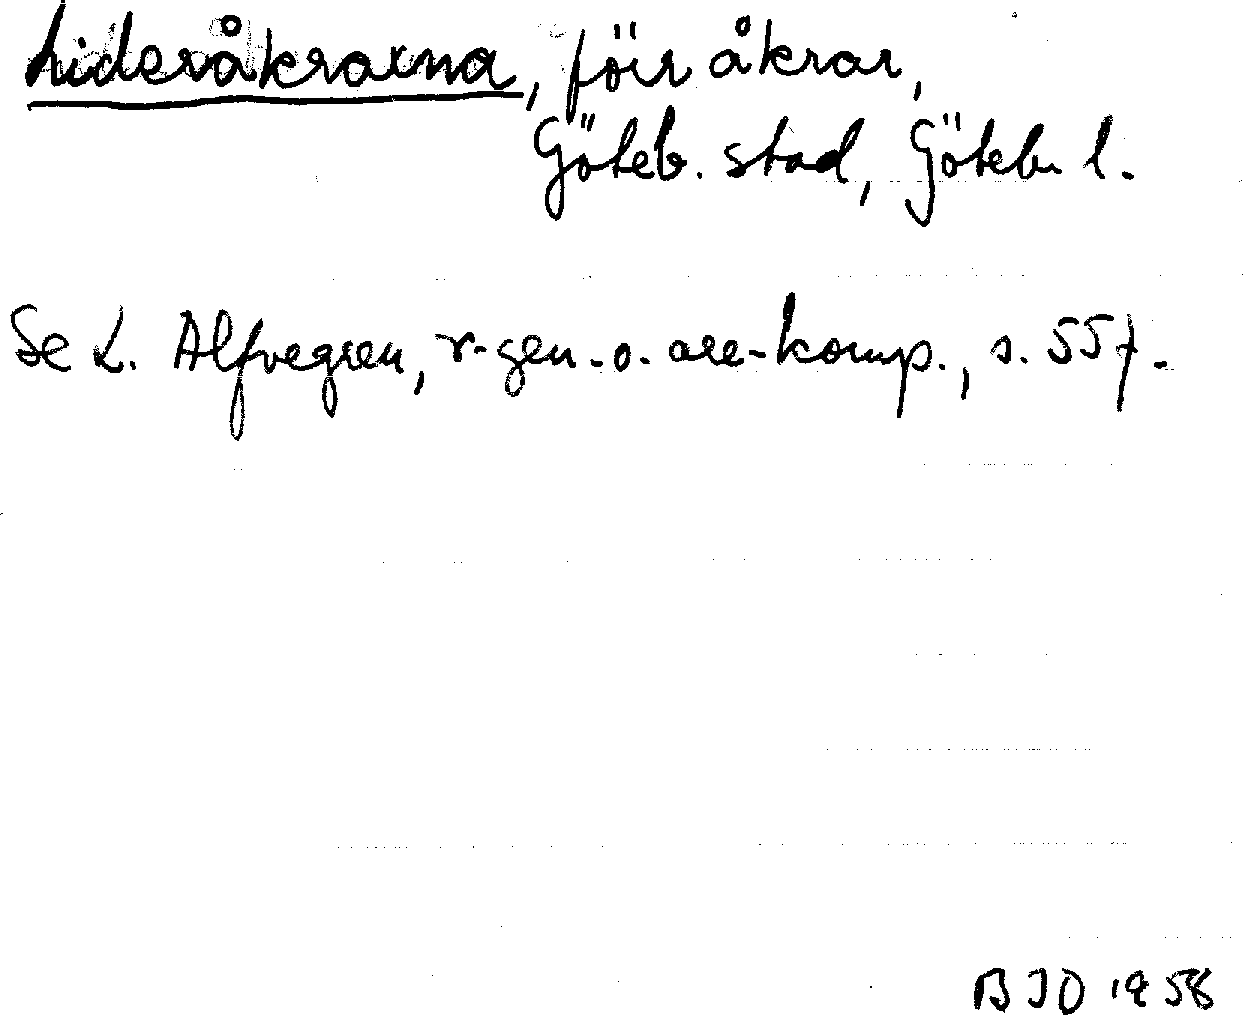 Lideråkrarna, förr åkrar,
Göteb. stad, Göteb. l.
Se L. Alfvegren, r-gen. o. are-komp., s. 55f.
BJO 1958